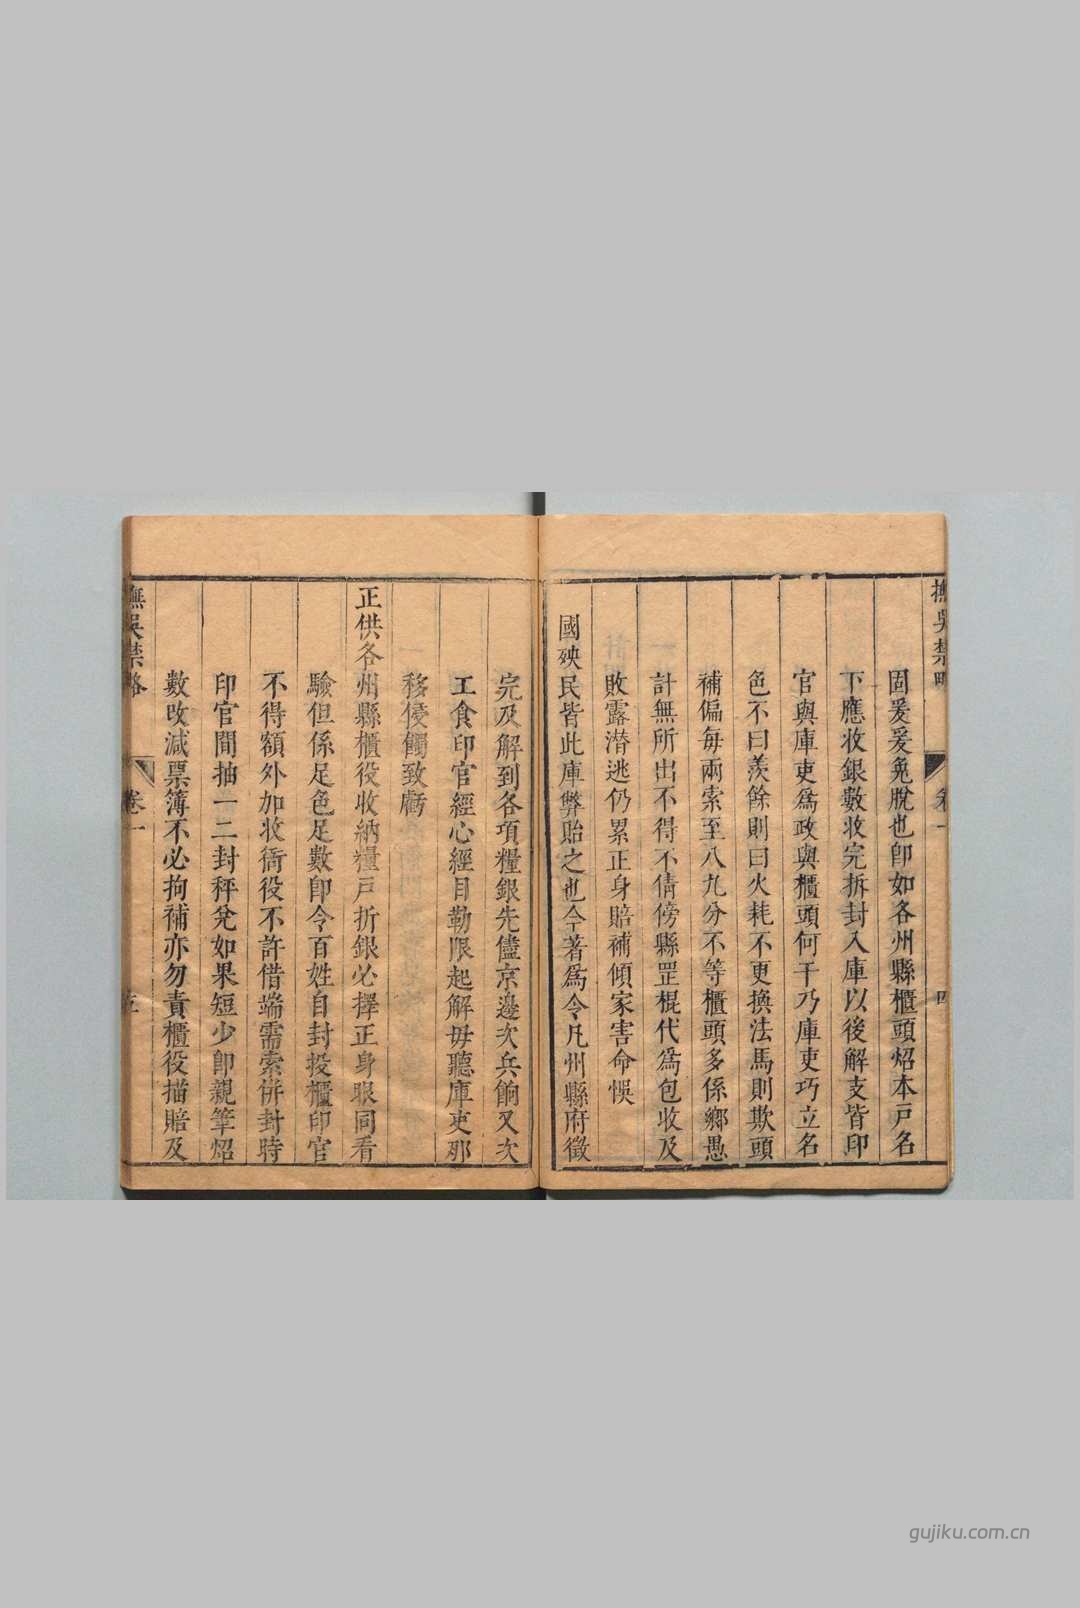 撫吳禁略
卷一
四
固爰爰兔脫也卽如各州縣櫃頭炤本戸名
下應收銀數收完拆封入庫以後解支皆印
官與庫吏爲政與櫃頭何干乃庫吏巧立名
色不曰羨餘則曰火耗不更換法馬則欺頭
補偏每兩索至八九分不等櫃頭多係鄉愚
計無所出不得不倩傍縣罡棍代爲包收及
敗露潜逃仍累正身賠補傾家害命悞
國殃民皆此庫弊貽之也今著爲令凡州縣府徵
完及解到各項糧銀先儘京邊次兵餉又次
工食印官經心經目勒限起解毋聽庫吏那
移侵觸致虧
正供各州縣櫃役收納糧戸折銀必擇正身眼同看
驗但係足色足數卽令百姓自封投櫃印官
不得額外加收衙役不許借端需索併封時
印官間抽一二封秤兌如果短少卽親筆炤
數改減票簿不必拘補亦勿責櫃役描賠及
撫吳禁略
卷一
五
gujiku.com.cn